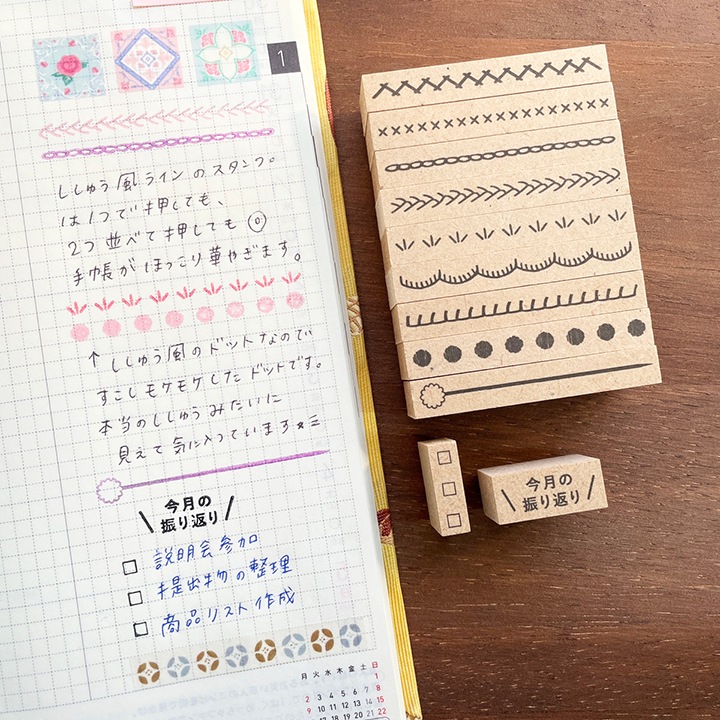 1
ししゅう風ラインのスタンプ。
は1つで押しても、
2つ並べて押しても◎
手帳がほっこり華やぎます。
↑ししゅう風のドットなので
すこしモケモケしたドットです。
本当のししゅうみたいに
見えて気に入っています
今月の
振り返り
□ 説明会参加
□ 提出物の整理
□ 商品リスト作成
月 火 水 木 金 土 日
1
2 3 4 5 6 7 8
9 10 11 12 13 14 15
17 18 19 20 21 22
今月の
振り返り